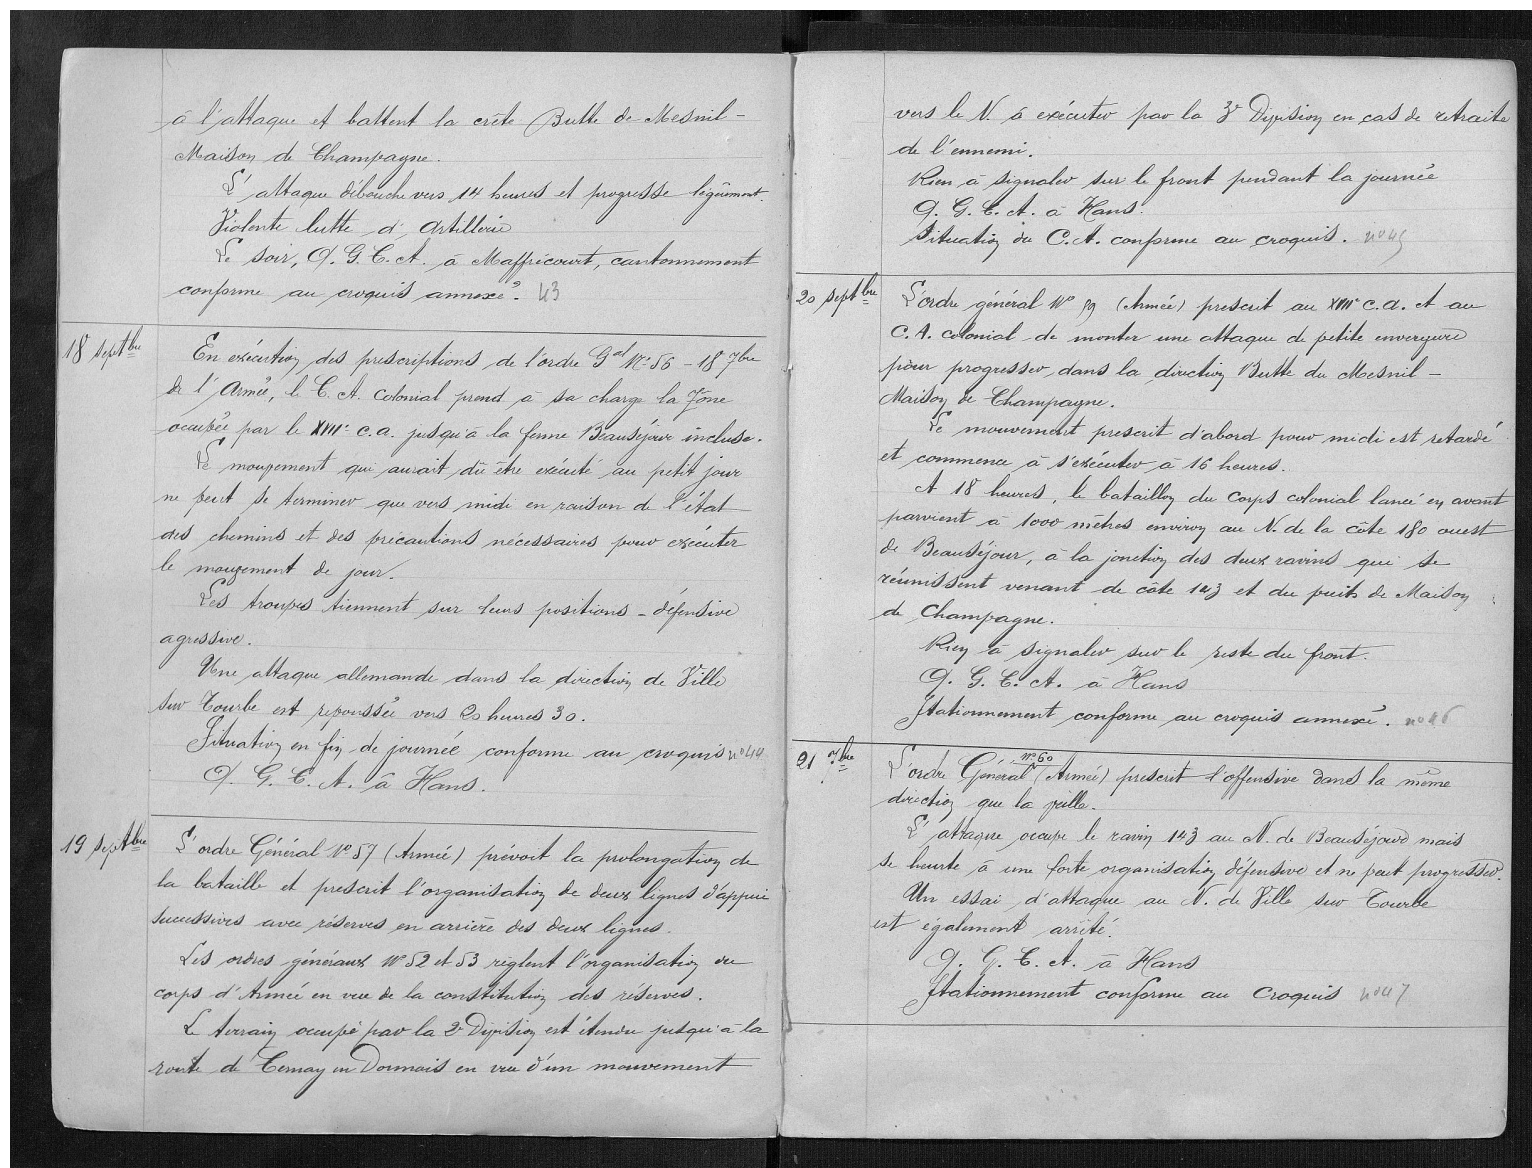 à l'attaque et battent la crête Butte de Mesnil -
Maison de Champagne.
L'attaque débouche vers 14 heures et progresse légèrement.
Violente lutte d'artillerie
Le soir, Q. G. C. A. à Maffrécourt, cantonnement
conforme au croquis annexé. 43
18 septbre
En exécution des prescriptions de l'ordre Gal N° 56 - 18 7bre
de l'Armée, le C. A. Colonial prend à sa charge la zone
occupée par le XVIIe C.A. jusqu'à la ferme Beauséjour incluse.
Le mouvement qui aurait dû être exécuté au petit jour
ne peut se terminer que vers midi en raison de l'état
des chemins et des précautions nécessaires pour exécuter
le mouvement de jour.
Les troupes tiennent sur leurs positions - défensive
agressive.
Une attaque allemande dans la direction de Ville
sur Tourbe est repoussée vers 20 heures 30.
Situation en fin de journée conforme au croquis n° 44
Q. G. C. A. à Hans.
19 septbre
L'ordre Général N° 57 (Armée) prévoit la prolongation de
la bataille et prescrit l'organisation de deux lignes d'appui
successives avec réserves en arrière des deux lignes.
Les ordres généraux N° 52 et 53 règlent l'organisation du
corps d'Armée en vue de la constitution des réserves.
Le terrain occupé par la 2e Division est étendu jusqu'à la
route de Cernay en Dormois en vue d'un mouvement
vers le N. à exécuter par la 3e Division en cas de retraite
de l'ennemi.
Rien à signaler sur le front pendant la journée
Q. G. C. A. à Hans.
Situation du C. A. conforme au croquis. n° 45
20 septbre
L'ordre général N° 59 (Armée) prescrit au XVIIe C.A. et au
C. A. colonial de monter une attaque de petite envergure
pour progresser dans la direction Butte du Mesnil -
Maison de Champagne.
Le mouvement prescrit d'abord pour midi est retardé
et commence à s'exécuter à 16 heures.
A 18 heures, le bataillon du Corps colonial lancé en avant
parvient à 1000 mètres environ au N. de la côte 180 ouest
de Beauséjour, à la jonction des deux ravins qui se
réunissent venant de côte 143 et du puits de Maison
de Champagne.
Rien à signaler sur le reste du front.
Q. G. C. A. à Hans
Stationnement conforme au croquis annexé. n° 46
21 7bre
L'ordre Général n° 60 (Armée) prescrit l'offensive dans la même
direction que la veille.
L'attaque occupe le ravin 143 au N. de Beauséjour mais
se heurte à une forte organisation défensive et ne peut progresser.
Un essai d'attaque au N. de Ville sur Tourbe
est également arrêté.
Q. G. C. A. à Hans
Stationnement conforme au croquis n° 47